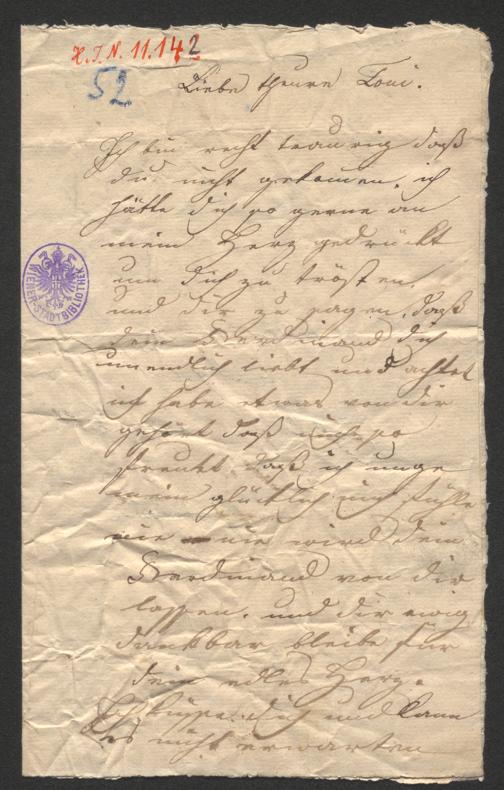 H. I. N. 11.142
52
Liebe theure Toni.
Ich bin recht traurig daß
du nicht gekomen, ich
hätte dich so gerne an
mein Herz gedrückt
um dich zu trösten,
und dir zu sagen, daß
dein Ferdinand dich
unendlich liebt und achtet
ich habe etwas von dir
gehört daß mich so
freut, daß ich unge
mein glücklich mich fühle
nie nie wird dein
Ferdinand von dir
lassen, und dir ewig
dankbar bleibe für
dein edles Herz.
Ich küsse dich und kann
es nicht erwarten
WIENER-STADTBIBLIOTHEK